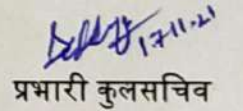 17-11-21
प्रभारी कुलसचिव